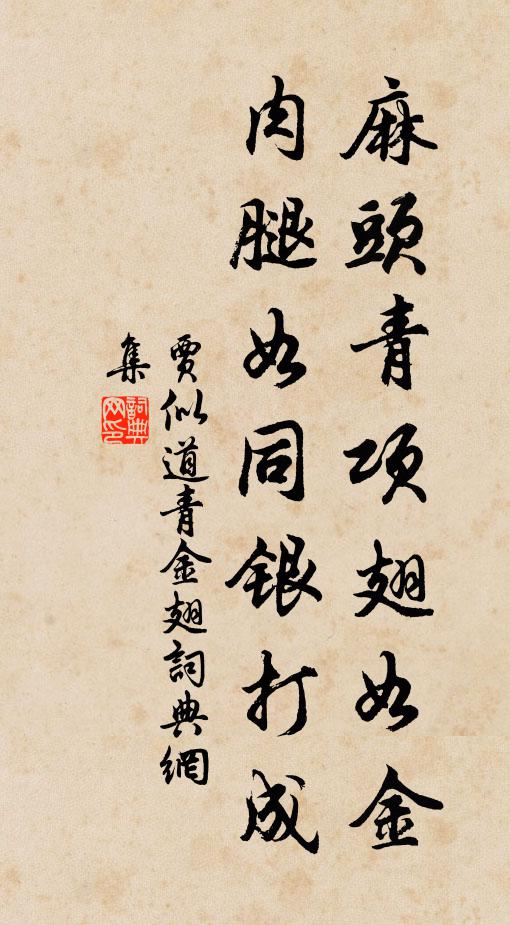 麻頭青項翅如金
肉腿如同銀打成
賈似道青金翅詞典網
集
詞典网印